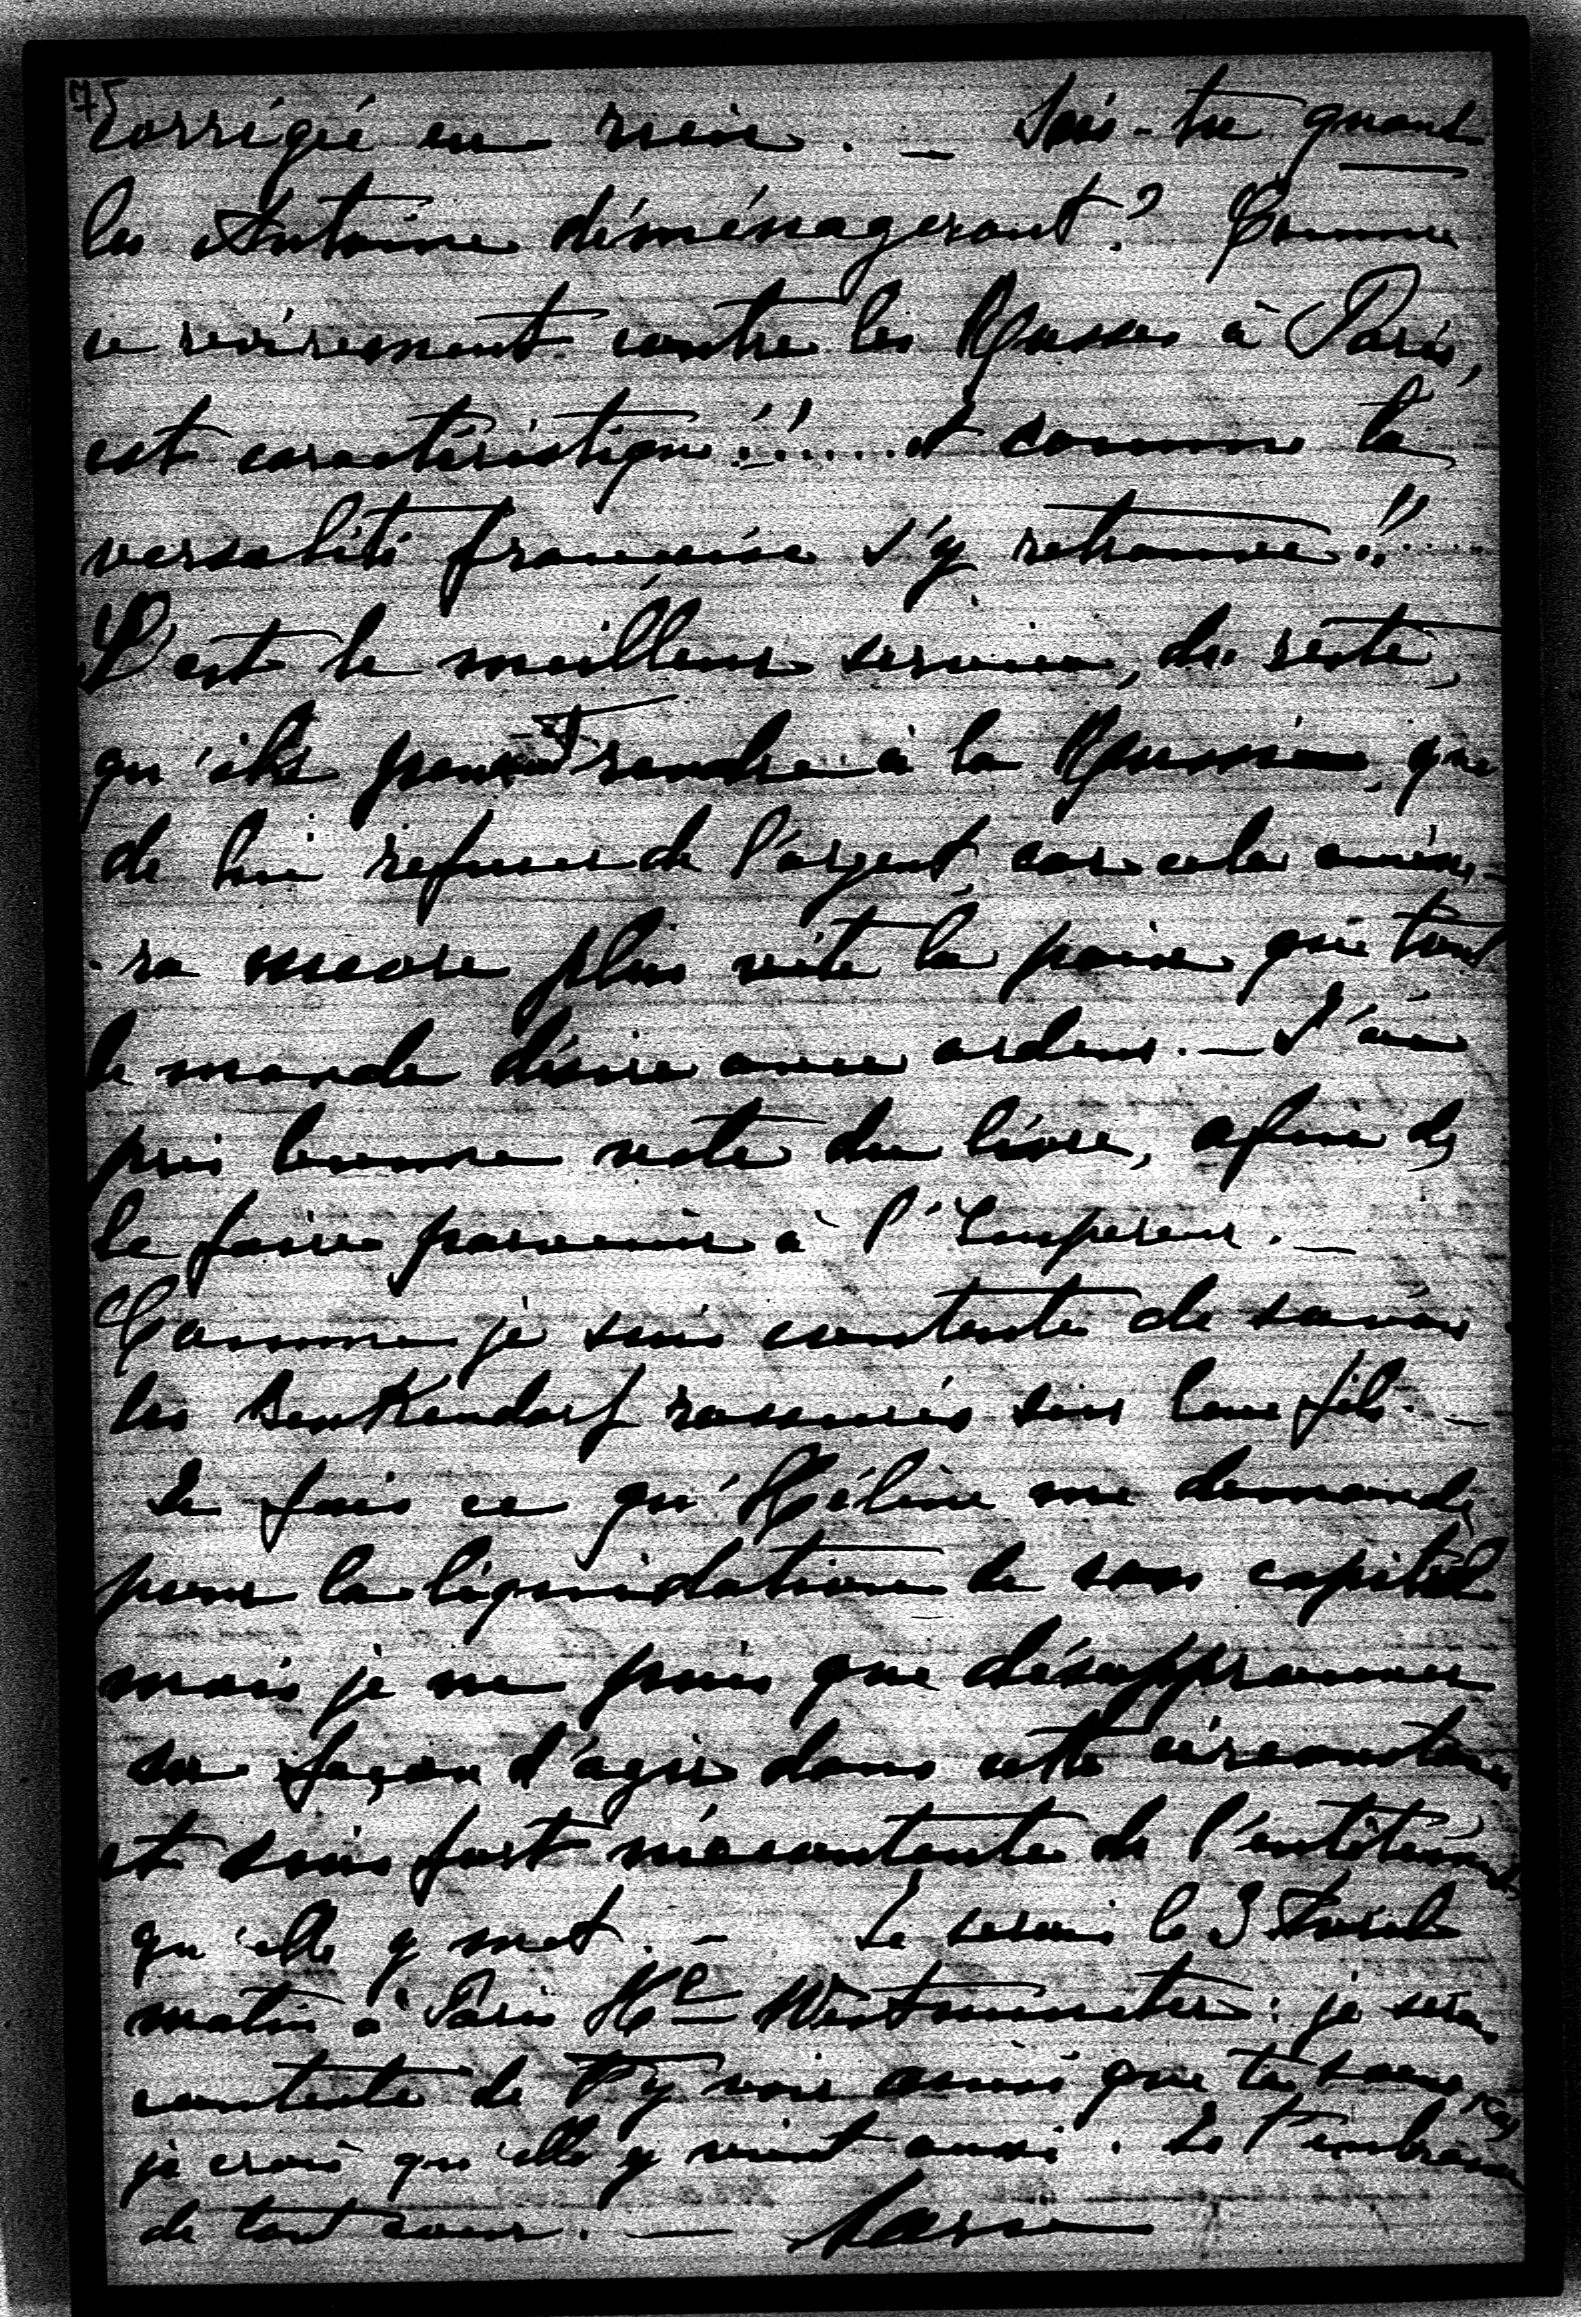 75
corrigée en rien. — Sais-tu quand
les Antoine déménageront? Comme
ce revirement contre les Russes à Paris,
est caractéristique!!..... et comme la
versalité française s'y retrouve!!.....
C'est le meilleur service, du reste,
qu'ils peuvent rendre à la Russie, que
de lui refuser de l'argent, car cela amène-
-ra encore plus vite la paix que tout
le monde désire avec ardeur. — J'ai
pris bonne note du livre, afin de
le faire parvenir à l'Empereur. —
Comme je suis contente de savoir
les Benkendorf rassurés sur leur fils. —
Je fais ce qu'Hélène me demande
pour la liquidation de son capital
mais je ne puis que désapprouver
sa façon d'agir dans cette circonstance
et suis fort mécontente de l'entêtement
qu'elle y met. — Je serai le 3 Avril
matin à Paris Hl Westminster: je serai
contente de t'y voir ainsi que ta soeur, car
je crois qu'elle y vient aussi. Je t'embrasse
de tout coeur. —